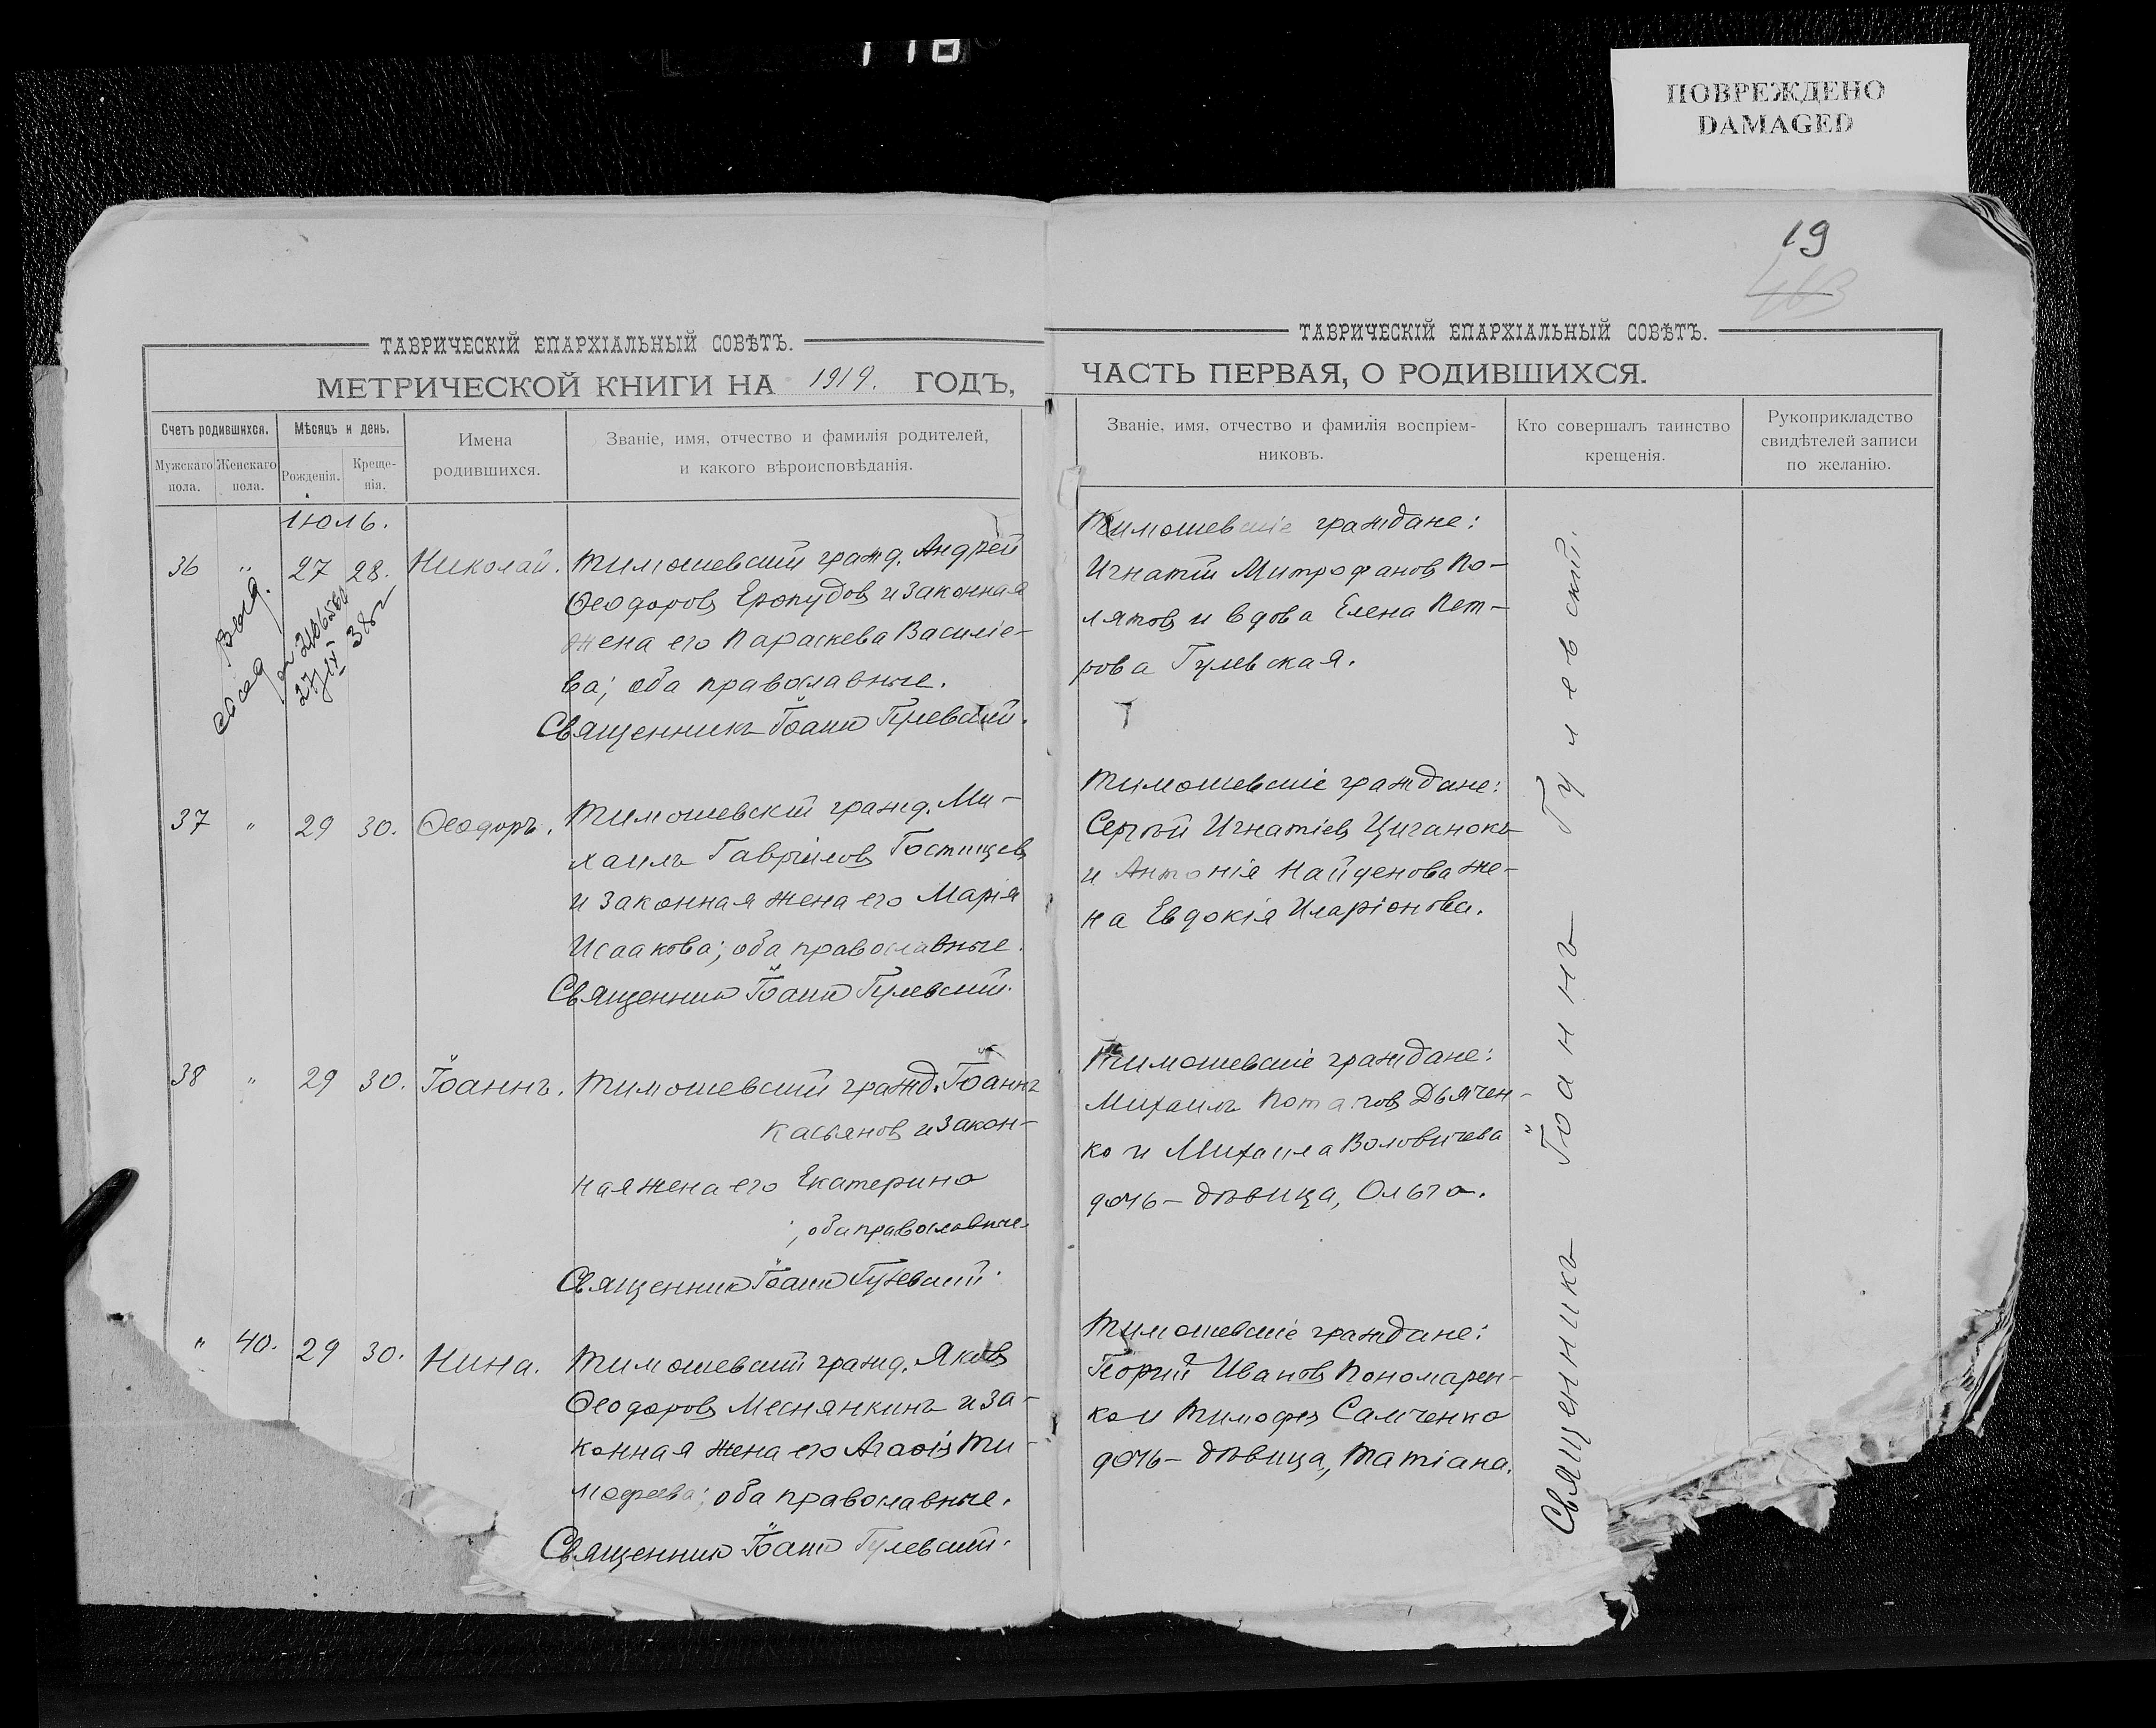 ПОВРЕЖДЕНО
DAMAGED
19
ТАВРИЧЕСКІЙ ЕПАРХІАЛЬНЫЙ СОВѢТЪ.
МЕТРИЧЕСКОЙ КНИГИ НА 1919. ГОДЪ,
Счетъ родившихся.
Мужскаго пола.
Женскаго пола.
Мѣсяцъ и день.
Рожденія.
Креще-
нія.
Имена
родившихся.
Званіе, имя, отчество и фамилія родителей,
и какого вѣроисповѣданія.
Июль.
36 " 27 28. Николай. Тимошевскій гражд. Андрей
Ѳеодоровъ Еропудовъ и законная
жена его Параскева Василіе-
ва; оба православные.
Священникъ Іоаннъ Гулевскій.
выд.
37 " 29 30. Ѳеодоръ. Тимошевскій гражд. Ми-
хаилъ Гавріиловъ Гостищевъ
и законная жена его Марія
Исаакова; оба православные.
Священникъ Іоаннъ Гулевскій.
38 " 29 30. Іоаннъ. Тимошевскій гражд. Іоаннъ
Касьяновъ и закон-
ная жена его Екатерина
; оба православные.
Священникъ Іоаннъ Гулевскій.
" 40. 29 30. Нина. Тимошевскій гражд. Яковъ
Ѳеодоровъ Меснянкинъ и за-
конная жена его Агаѳія Ти-
моѳеева; оба православные.
Священникъ Іоаннъ Гулевскій.
ТАВРИЧЕСКІЙ ЕПАРХІАЛЬНЫЙ СОВѢТЪ.
ЧАСТЬ ПЕРВАЯ, О РОДИВШИХСЯ.
Званіе, имя, отчество и фамилія воспріем-
никовъ.
Кто совершалъ таинство
крещенія.
Рукоприкладство
свидѣтелей записи
по желанію.
Тимошевскіе граждане:
Игнатій Митрофановъ По-
лятовъ и вдова Елена Пет-
рова Гулевская.
Тимошевскіе граждане:
Сергѣй Игнатіевъ Циганокъ
и Антонія Найденова же-
на Евдокія Иларіонова.
Тимошевскіе граждане:
Михаилъ Потаповъ Дьячен-
ко и Михаила Воловичева
дочь - дѣвица, Ольга.
Тимошевскіе граждане:
Георгій Ивановъ Пономарен-
ко и Тимоѳея Самченко
дочь - дѣвица, Татіана.
Священникъ Іоаннъ Гулевскій.